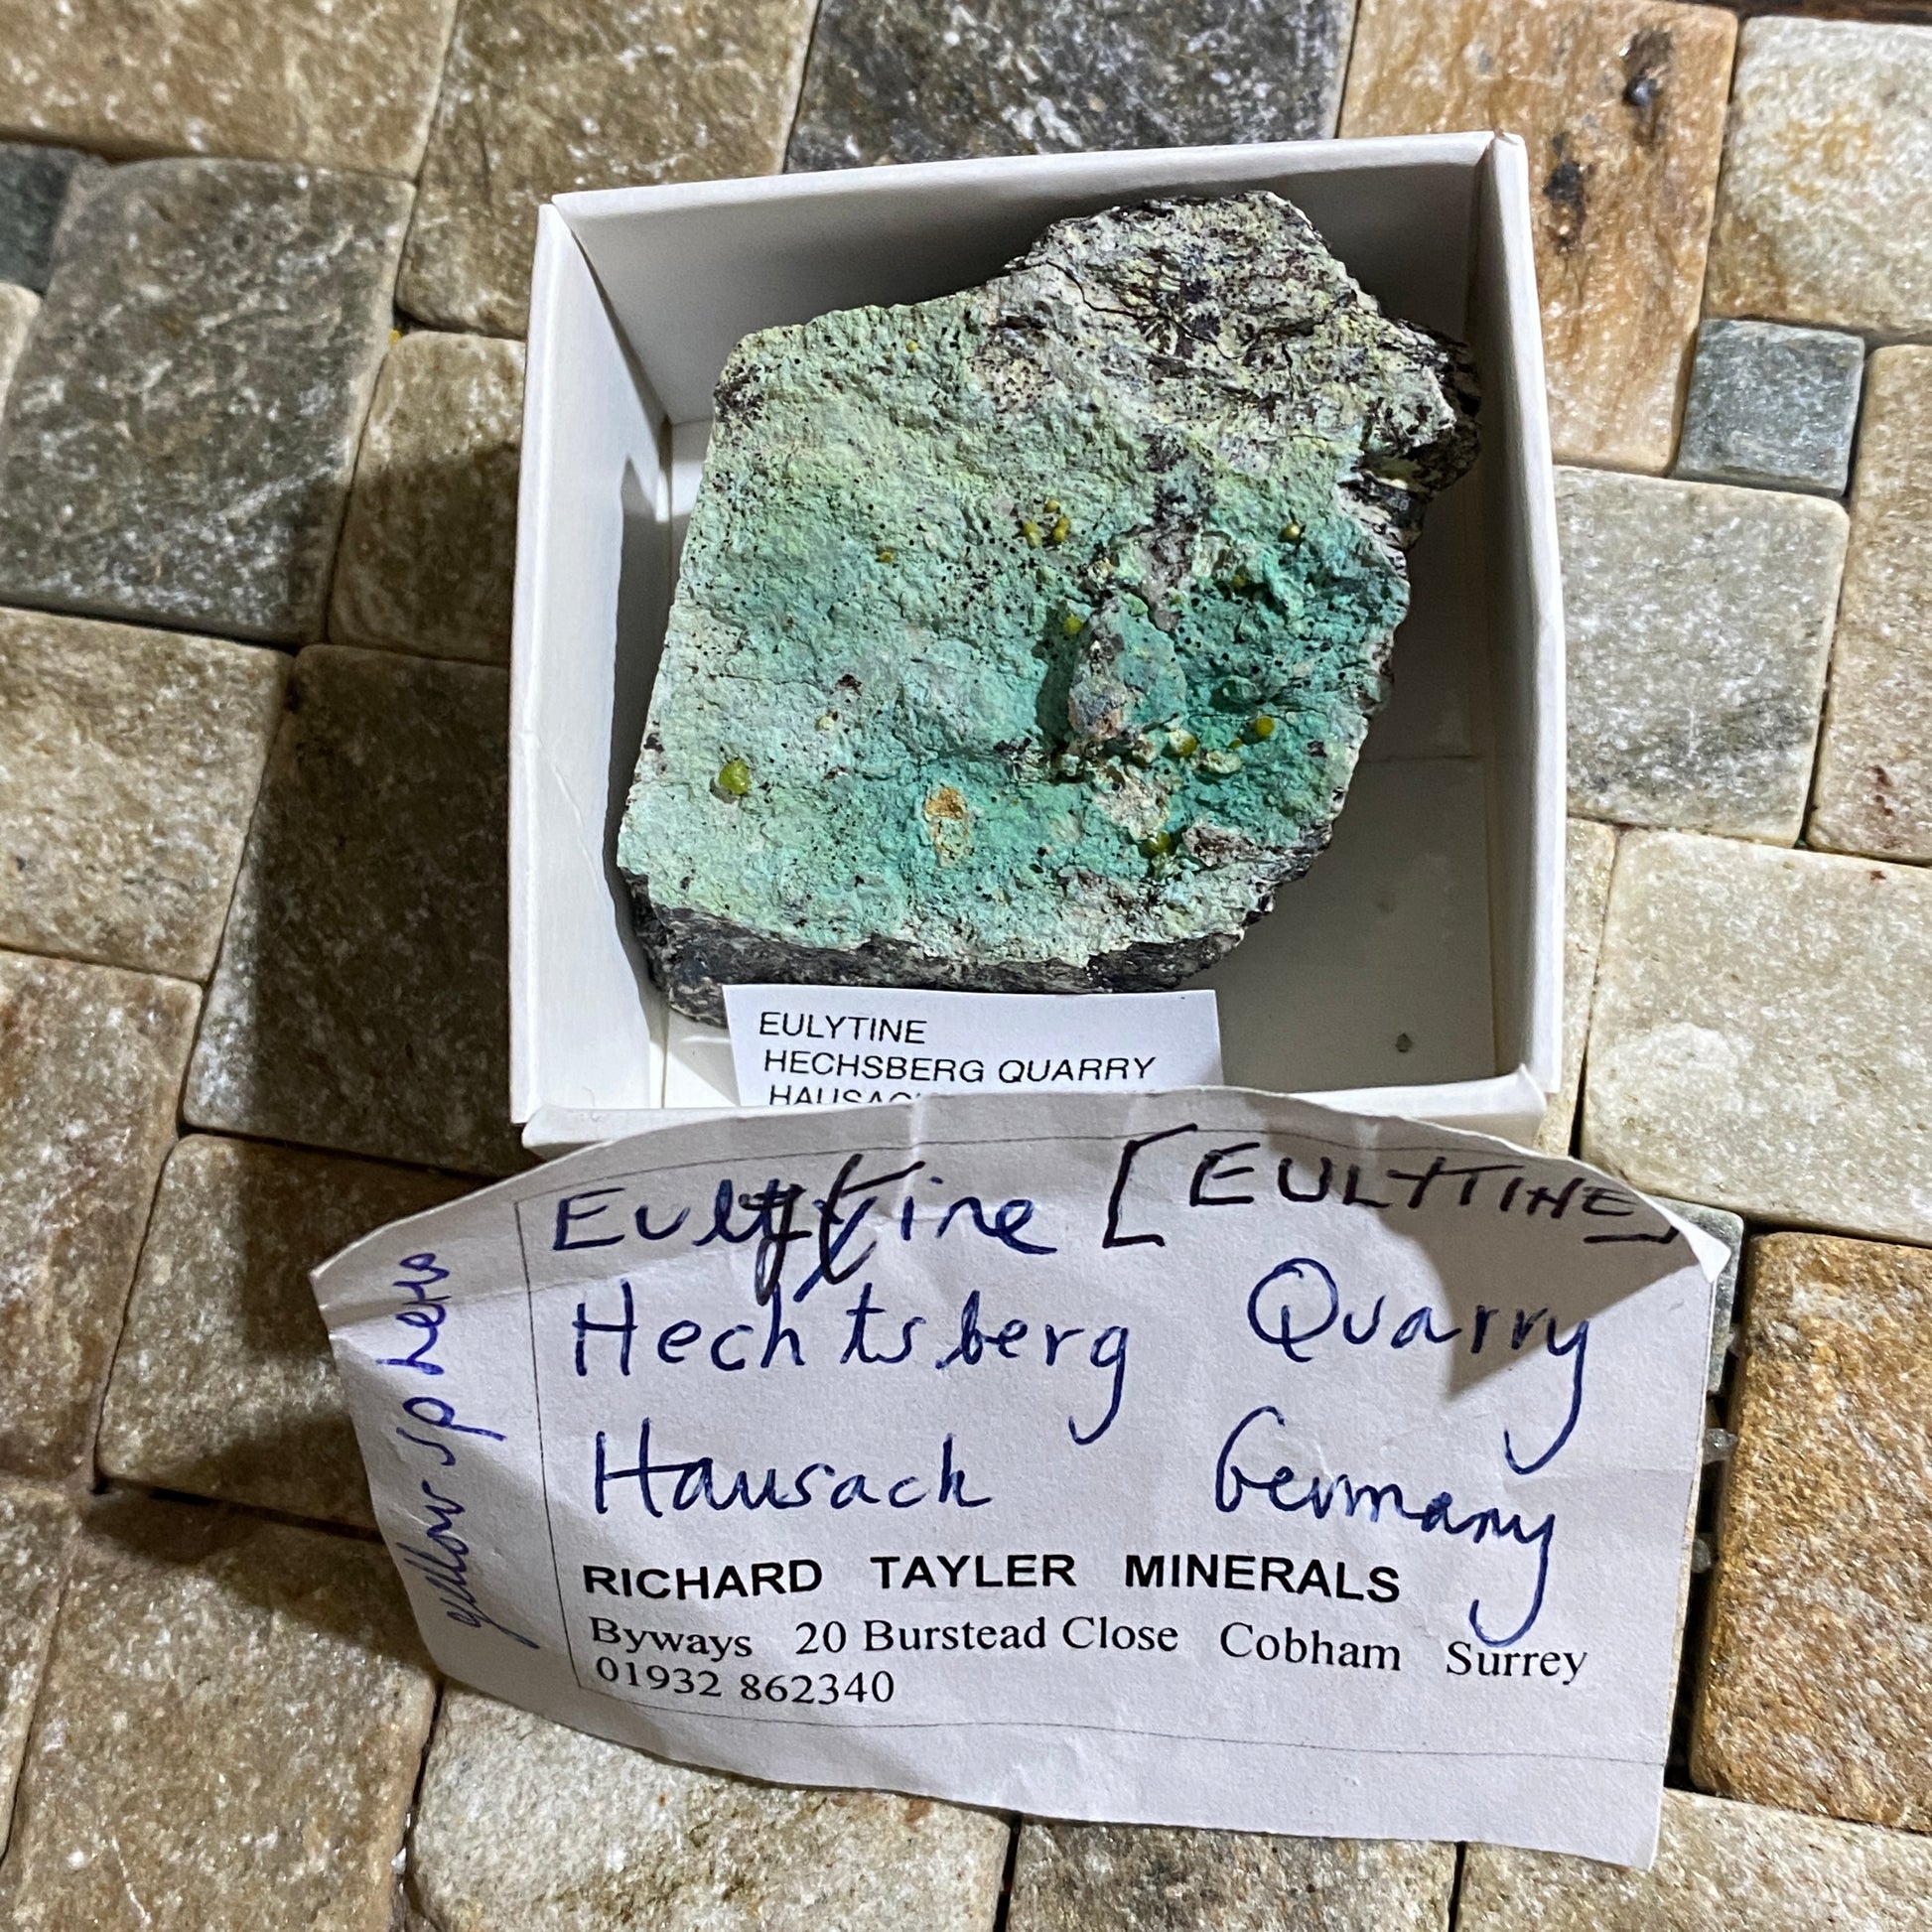 EULYTINE
HECHSBERG QUARRY
Eulytine [EULYTINE]
Hechtsberg Quarry
Hausach Germany
RICHARD TAYLER MINERALS
Byways 20 Burstead Close Cobham Surrey
01932 862340
yellow spheres